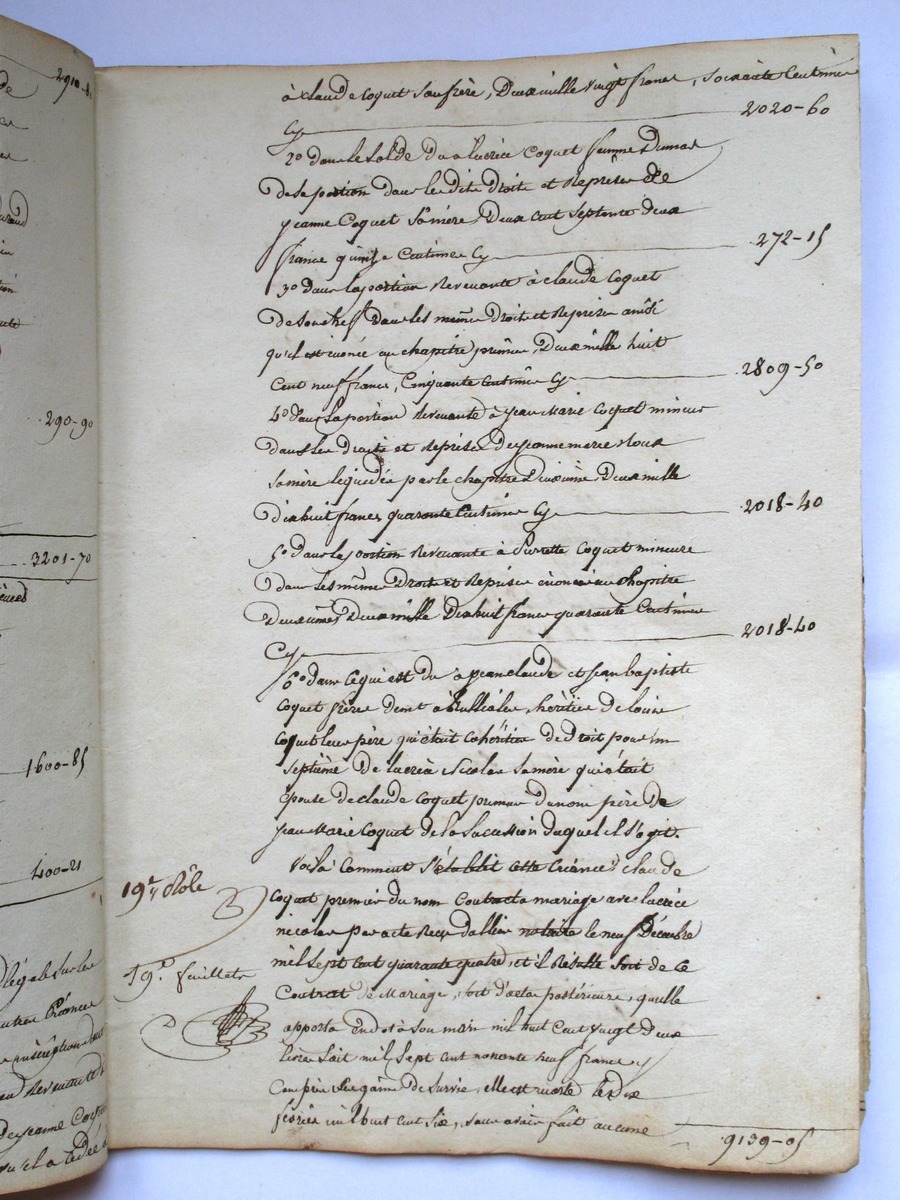 à Claude Coquet son frère, Deux mille vingt francs, soixante Centimes
Cy 2020-60
2º dans le solde Du à lucrèce Coquet femme Dumas
De sa portion dans les dits Droits et Reprises De
jeanne Coquet sa mère, Deux cent septente deux
francs quinze Centimes Cy 272-15
3º dans la portion Revenante à claude Coquet
De son chef dans les mêmes Droits et Reprises ainsi
qu'il est énoncé au chapitre premier, Deux mille huit
Cent neuf francs, Cinquante Centimes Cy 2809-50
4º dans la portion Revenante à jean Marie Coquet mineur
dans les droits et Reprises De jeanne marie
sa mère liquidée par le chapitre Deuxième, Deux mille
Dix huit francs quarante Centimes Cy 2018-40
5º dans la portion Revenante à Pierrette Coquet mineure
dans les mêmes Droits et Reprises énoncés au chapitre
Deuxième, Deux mille Dix huit francs quarante Centimes
Cy 2018-40
6º dans ce qui est du à jean claude et jean baptiste
Coquet frères demt à héritiers de louis
Coquet leur père qui était Cohéritier de Droit pour un
Septième De lucrèce Nicolas sa mère qui était
Epouse de claude Coquet premier du nom père de
jean Marie Coquet de la succession duquel il s'agit.
Voilà Comment s'établit cette Créance: claude
Coquet premier du nom Contracta mariage avec lucrèce
nicolas par acte Reçu dallier notaire le neuf Décembre
mil sept Cent quarante quatre, et il Résulte soit de ce
Contrat de Mariage, soit d'actes postérieurs, qu'elle
apporta En dot à son mari mil huit Cent vingt Deux
livres soit mil sept cent nonante neuf francs y
Compris le gain de survie, elle est morte le dix
février mil huit cent six, sans avoir fait aucune
9139-05
19e Rôle
19e feuillet
2910-8
290-90
3201-70
1600-85
400-21